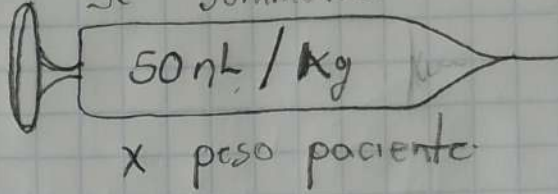 50 nL / Kg
x peso paciente.